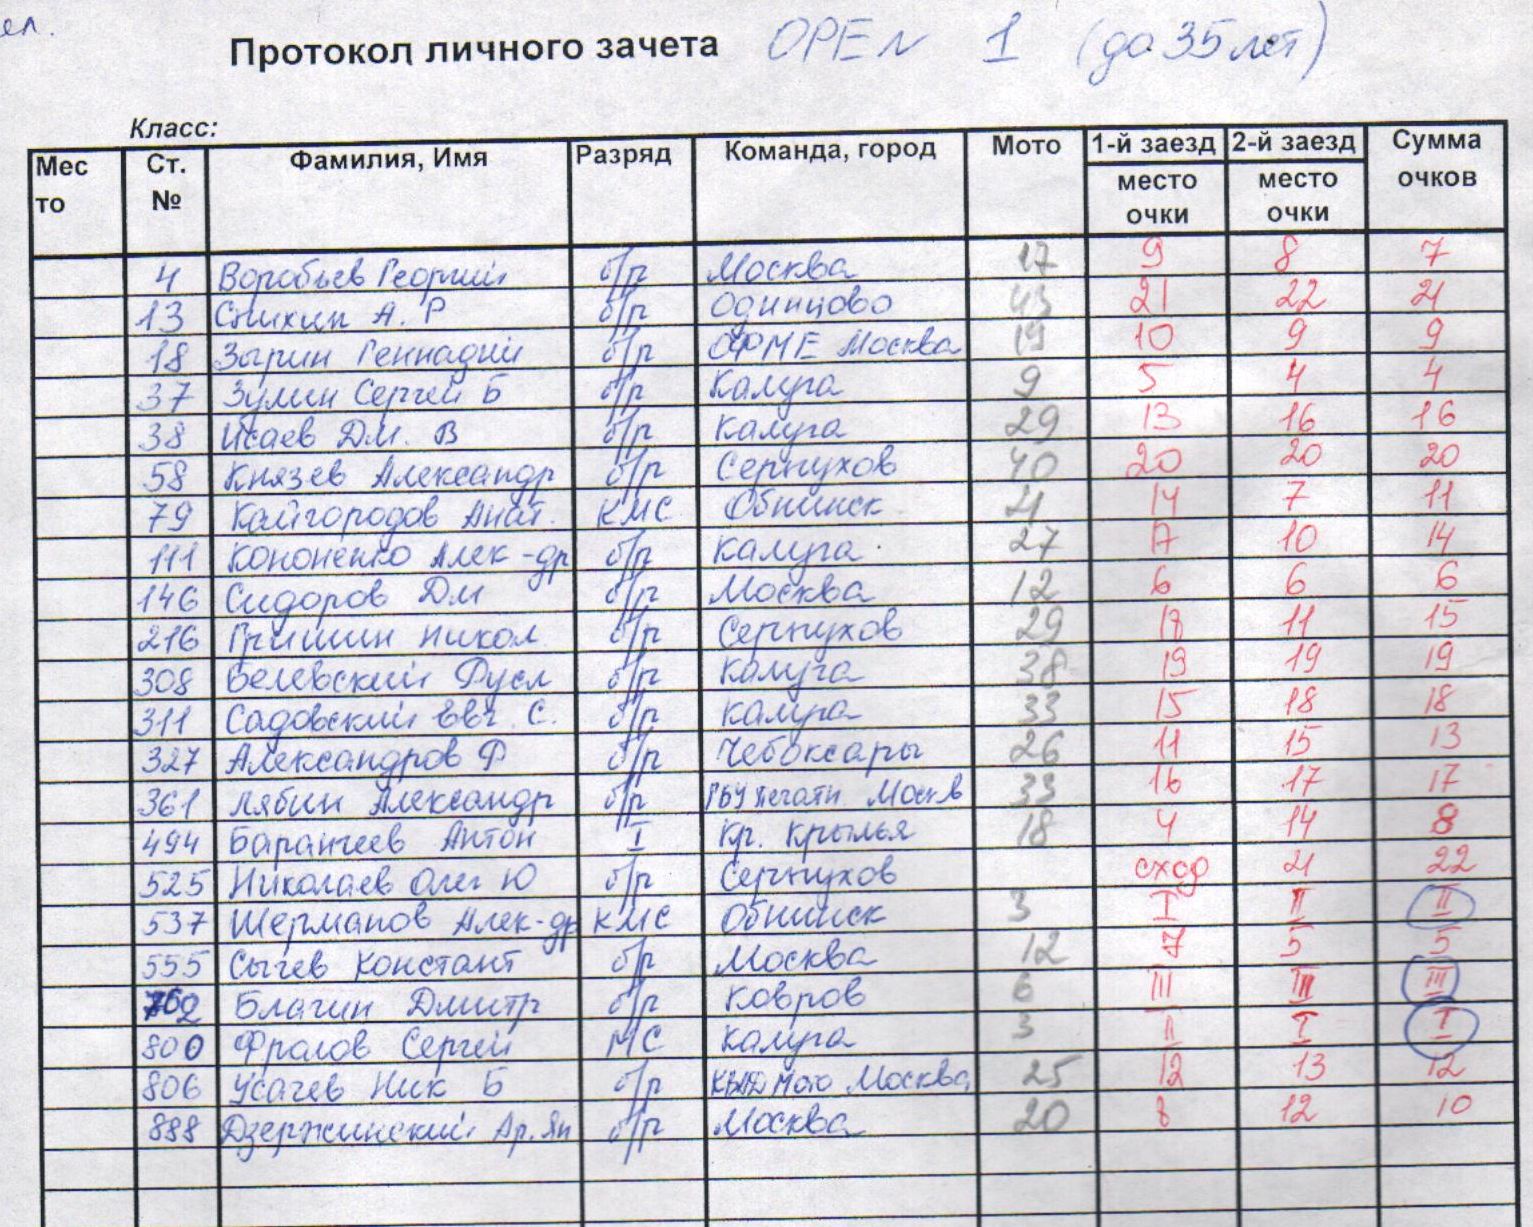 ел.
Протокол личного зачета OPEN 1 (до 35 лет)
Класс:
Мес то Ст. № Фамилия, Имя Разряд Команда, город Мото 1-й заезд место очки 2-й заезд место очки Сумма очков
4 Воробьев Георгий б/р Москва 17 9 8 7
13 А. Р б/р Одинцово 43 21 22 21
18 Зырин Геннадий б/р Москва 19 10 9 9
37 Зулин Сергей Б б/р Калуга 9 5 4 4
38 Исаев Дм. В б/р Калуга 29 13 16 16
58 Князев Александр б/р Серпухов 40 20 20 20
79 Кайгородов Анат. КМС Обнинск 21 14 7 11
111 Кононенко Алек-др б/р Калуга 27 17 10 14
146 Сидоров Дм б/р Москва 12 6 6 6
216 Гришин Никол. б/р Серпухов 29 18 11 15
308 Белевский Русл б/р Калуга 38 19 19 19
311 Садовский Евг. С. б/р Калуга 33 15 18 18
327 Александров Ф б/р Чебоксары 26 11 15 13
361 Лябин Александр б/р печати Москв 33 16 17 17
494 Баранчеев Антон I Кр. Крылья 18 4 14 8
525 Николаев Олег Ю б/р Серпухов сход 21 22
537 Шерманов Алек-др КМС Обнинск 3 I II II
555 Сычев Констант б/р Москва 12 7 5 5
762 Благин Дмитр б/р Ковров 6 III III III
800 Фролов Сергей МС Калуга 3 II I I
806 Усачев Ник Б б/р Мото Москва 25 12 13 12
888 Дзержинский Ар. Ян б/р Москва 20 8 12 10